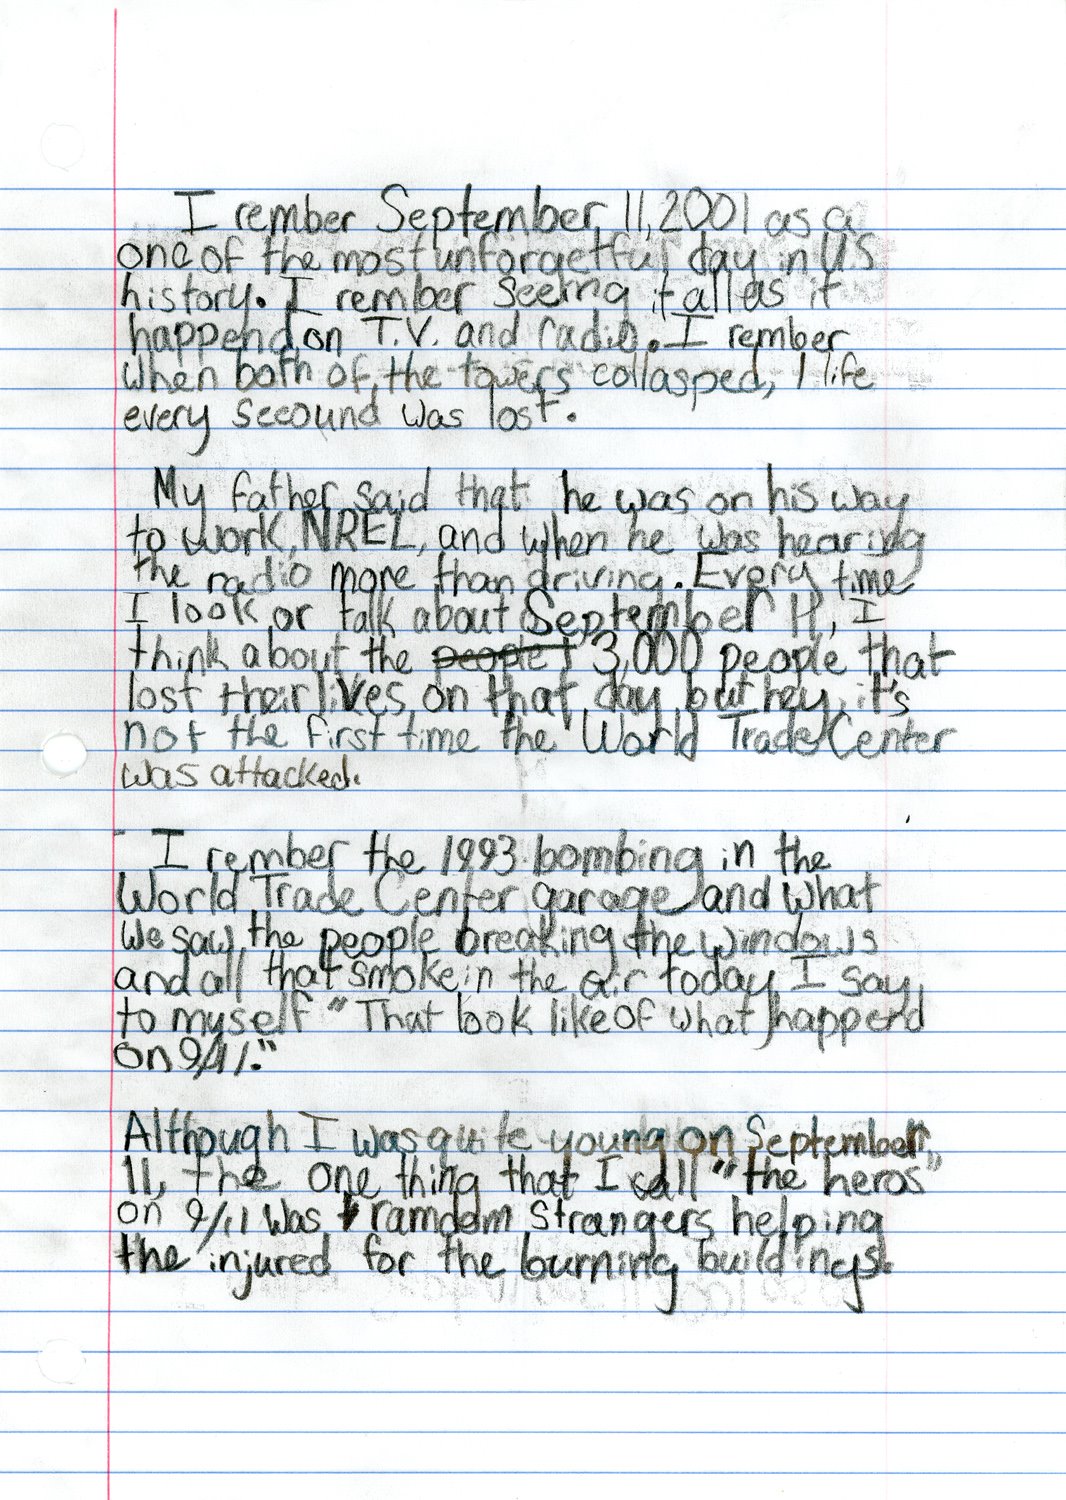 I rember September 11, 2001 as a
one of the most unforgetful day in US
history. I rember seeing it all as it
happend on T.V. and radio. I rember
when both of the towers collasped, 1 life
every secound was lost.
My father said that he was on his way
to work, NREL, and when he was hearing
the radio more than driving. Every time
I look or talk about September 11, I
think about the people 3,000 people that
lost their lives on that day but hey, it's
not the first time the World Trade Center
was attacked.
I rember the 1993 bombing in the
World Trade Center garage and what
we saw, the people breaking the windows
and all that smoke in the air today I say
to myself "That look like of what happend
on 9/11."
Although I was quite young on September
11, the one thing that I call "the heros"
on 9/11 was ramdom strangers helping
the injured for the burning buildings.